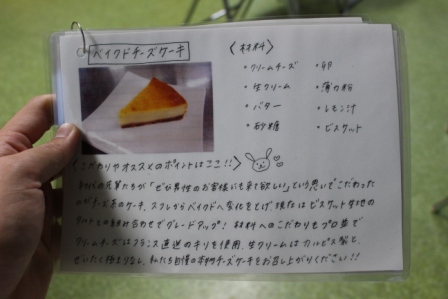 ベイクドチーズケーキ
〈材料〉
・クリームチーズ ・卵
・生クリーム ・薄力粉
・バター ・レモン汁
・砂糖 ・ビスケット
〈こだわりやオススメのポイントはここ!!〉
「ぜひ男性のお客様にも来て欲しい」という思いでこだわった
のがチーズ系のケーキ。スフレからベイクドへ変化をとげ、現在はビスケット生地の
タルトとの組み合わせでグレードアップ! 材料へのこだわりもプロ並で
クリームチーズはフランス直送のキリを使用、生クリームはカルピス製と、
ぜいたく極まりなし、私たち自慢の本格チーズケーキをお召し上がりください!!